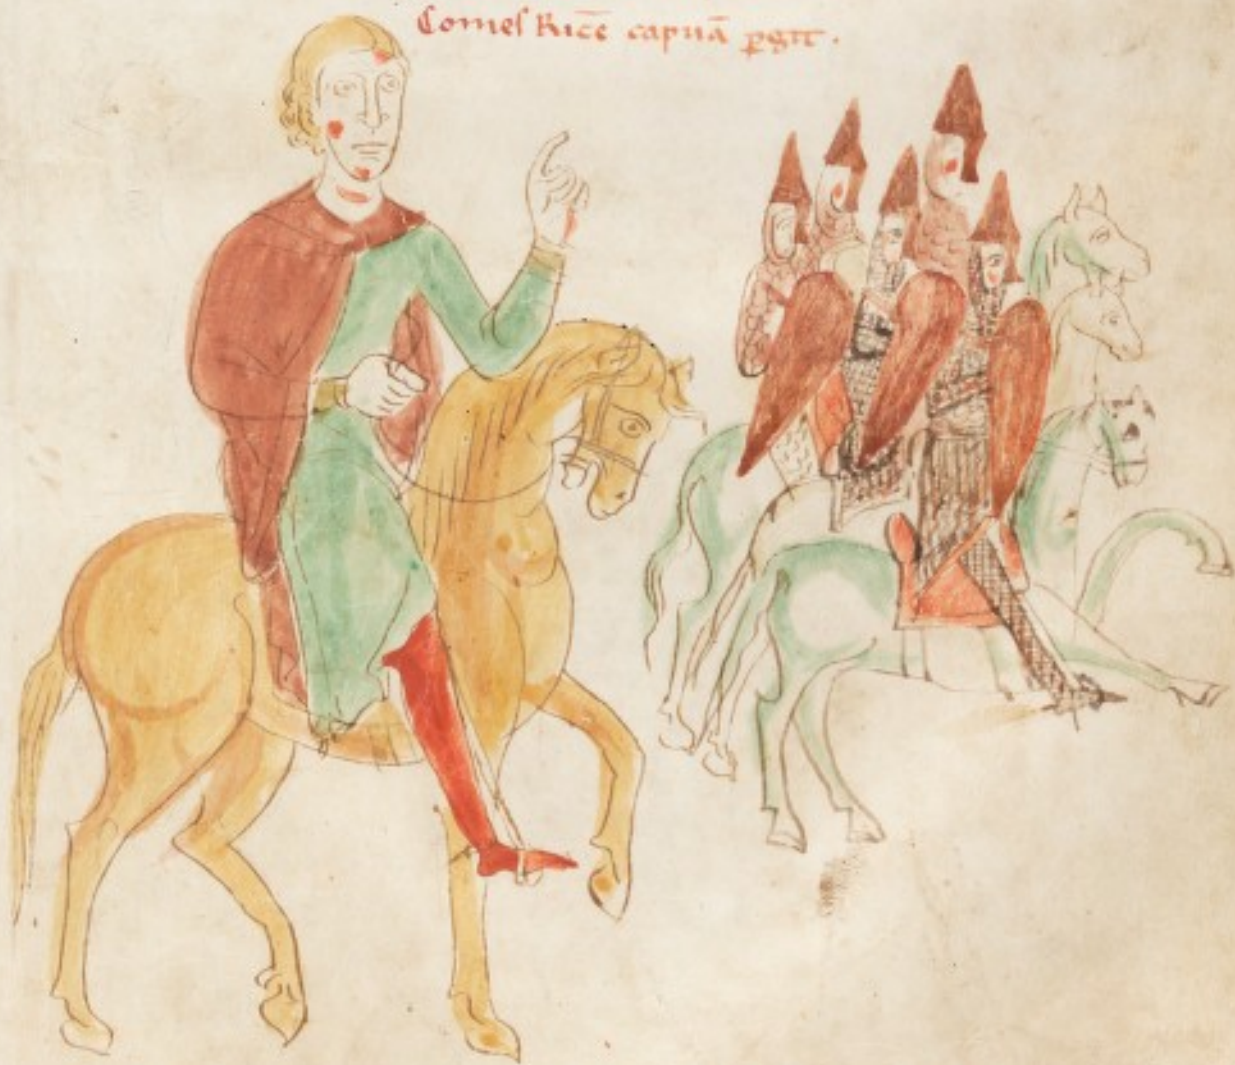 Comes Ricc̄ capuā ꝑgit.